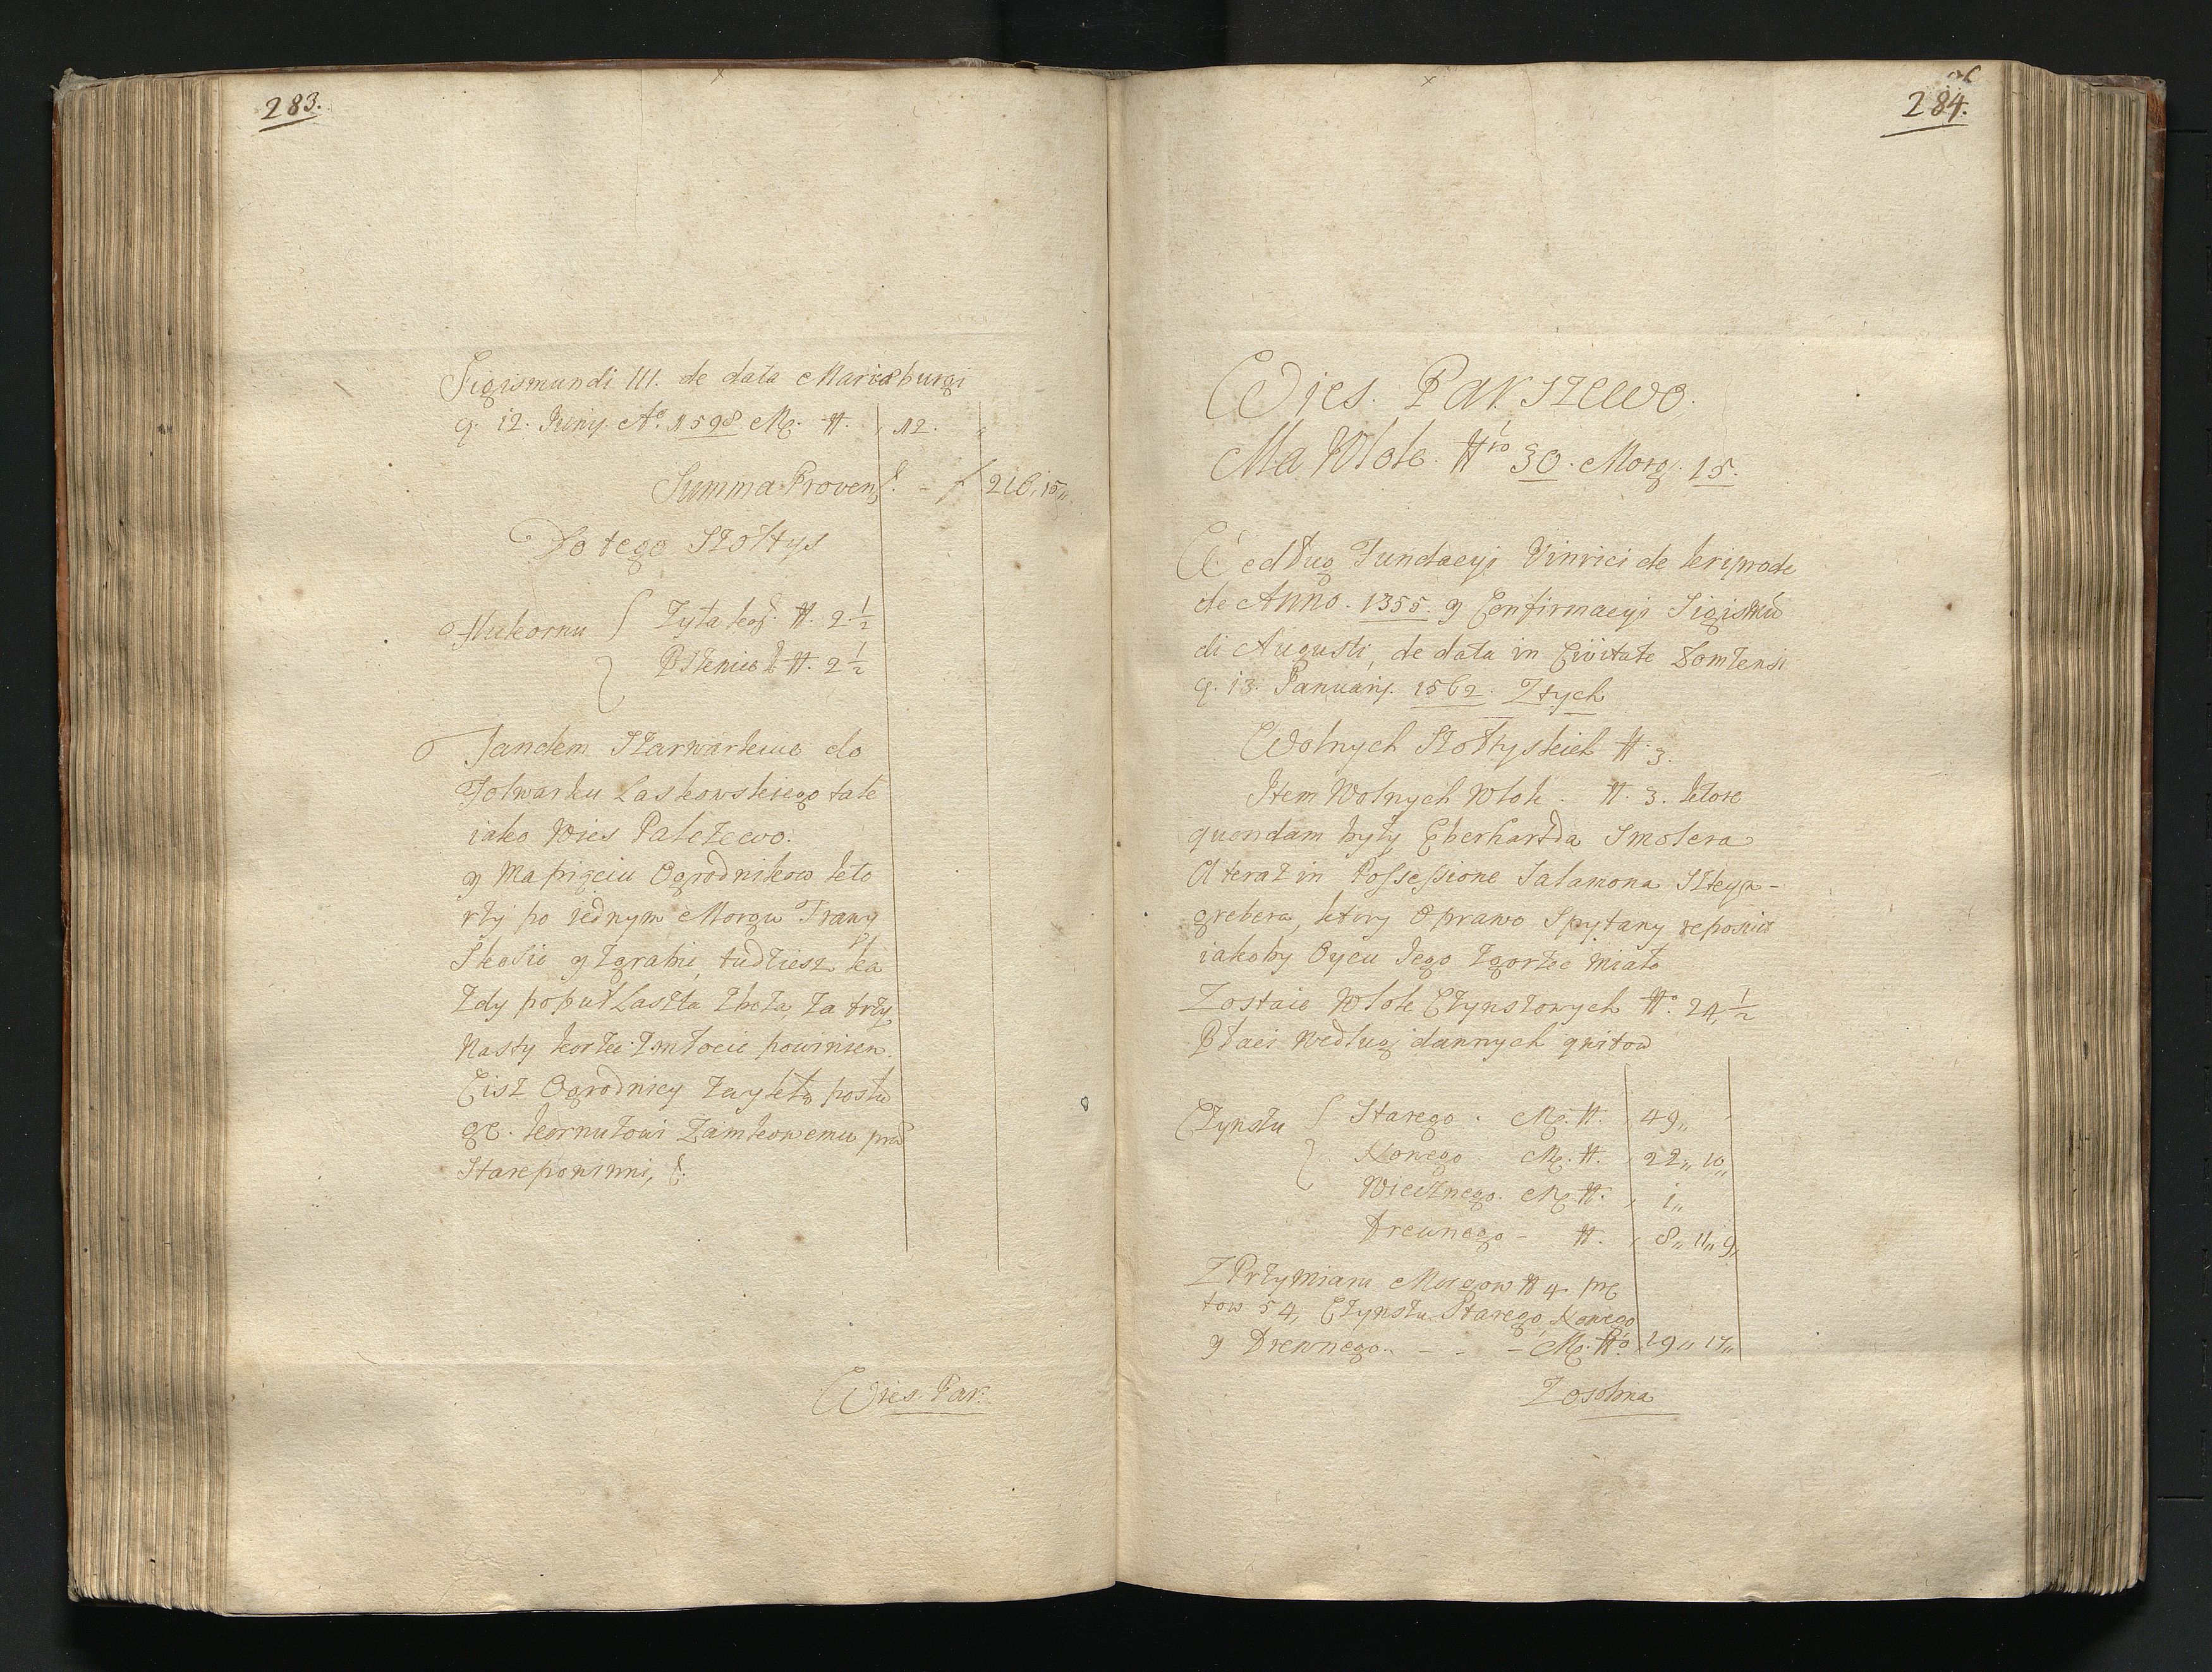 283.
Sigismundi III. de data Mariæburgi
q. 12. Juny. Aº. 1598 Mg. #. 12.
Summa Proven. - f 216, 15,,
Do tego Szołtys
Hukornu Zyta kor. #. 2 1/2
Pszenice k #. 2 1/2
Tandem Szarwarkuie do
Folwarku Laskowskiego tak
iako Wies Paleszewo.
y Ma pięciu Ogrodnikow kto
rzy po iednym Morgu Trawy
Skosic y Zgrabic, tudziesz ka
zdy po puł Laszta Zboza, za trzy
Nasty korzec Zmłocic powinien.
Cisz Ogrodnicy Zwykłą posłu
gę. kornutowi Zamkowemu prae
stare powinni,
Wies Par.
284.
Wies. Parszewo.
Ma Włok. #ro 30. Morg. 15.
Według Fundacyi Vinrici de Kniprode
de Anno. 1355. y Confirmacyi Sigismũ
di Augusti, de data in Civitate Lomzensi
q. 13. January. 1562. Z tych
Wolnych Szołtyskich #. 3.
Item Wolnych Włok. #. 3. ktore
quondam były Eberharda Smolera
A teraz in Possessione Salamona Szteyn-
grebera, ktory o prawo Spytany reposuit
iakoby Oycu Jego Zgorzec Miało
Zostaie Włok Czynszowych #º. 24, 1/2
Płaci Według dannych qwitow
Czynszu Starego. Mg. #. 49,,
Nowego. Mg. #. 22,, 10,,
Wiecznego. Mg. #. 1,,
Drewnego - #. 8,, 11,, 9,,
Z Przymiaru Morgow # 4. prę
tow 54, Czynszu Starego, Nowego
y Drewnego. - - - Mg. #º. 19,, 17,,
Zosobna